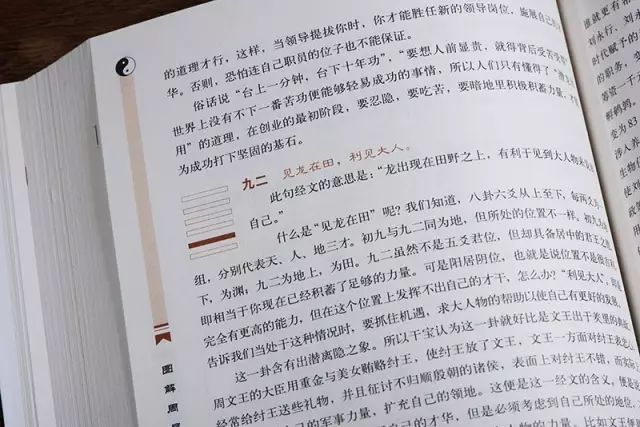 的道理才行,这样,当领导提拔你时,你才能胜任新的领导岗位,施展自己的才
华,否则,恐怕连自己职员的位子也不能保证。
俗话说“台上一分钟,台下十年功”,“要想人前显贵,就得背后受苦受
世界上没有不下一番苦功便能够轻易成功的事情,所以人们只有懂得了“潜龙
用”的道理,在创业的最初阶段,要忍隐,要吃苦,要暗地里积极积蓄力量,才
为成功打下坚固的基石。
九二 见龙在田,利见大人。
此句经文的意思是:“龙出现在田野之上,有利于见到大人物来
自己。”
什么是“见龙在田”呢?我们知道,八卦六爻从上至下,每两爻
组,分别代表天、人、地三才。初九与九二同为地,但所处的位置不一样。初九
下,为渊,九二为地上,为田。九二虽然不是五爻君位,但却具备居中的君王之
即相当于你现在已经积蓄了足够的力量。可是阳居阴位,也就是说位置不是很
完全有更高的能力,但在这个位置上发挥不出自己的才干,怎么办?“利见大人”,即
告诉我们当处于这种情况时,要抓住机遇,求大人物的帮助以使自己有更好的发展。
这一卦含有出潜离隐之象。所以干宝认为这一卦就好比是文王出于羑里的
周文王的大臣用重金与美女贿赂纣王,使纣王放了文王,文王一方面对纣王
经常给纣王送些礼物,并且征讨不归顺殷朝的诸侯,表面上对纣王不错,而实际
己的军事力量,扩充自己的领地。这便是这一经文的含义,便是
己的才华,但是必须考虑到自己所处的地位
力量。比如文王
图解周
谁就更有
刘永行、刘
时代赋予的
的职务,变
等凑一千
鹌鹑
变为 83
涉人养
生物
使刘